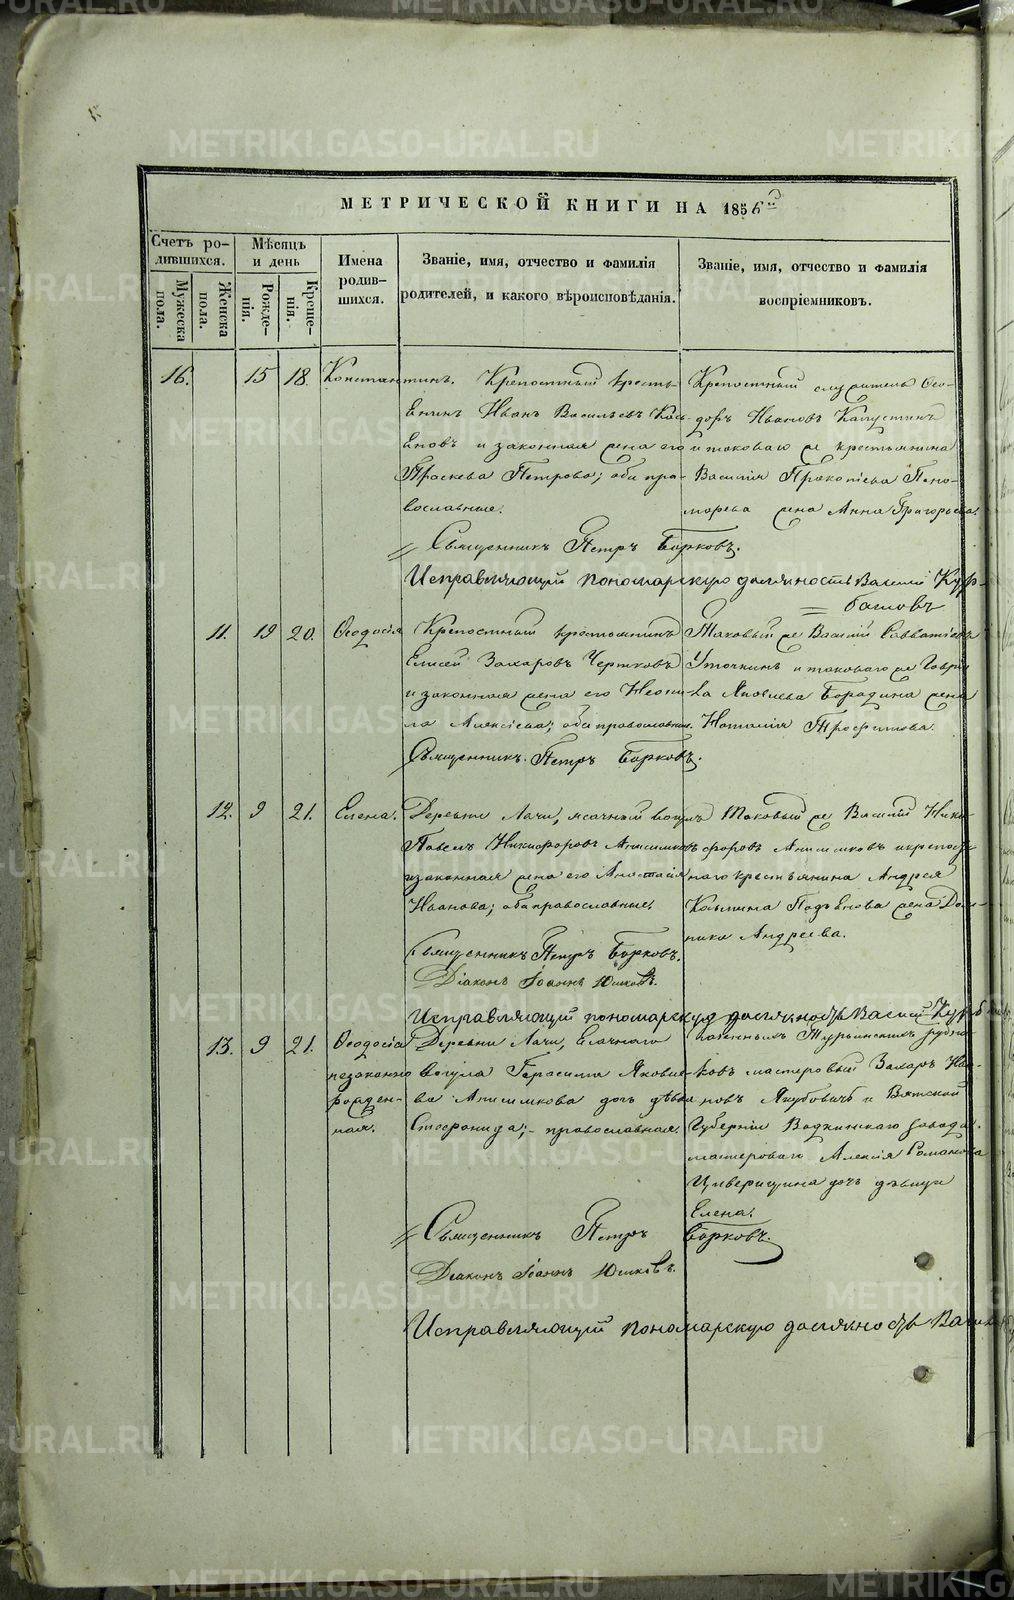 МЕТРИЧЕСКОЙ КНИГИ НА 1856й
Счетъ ро-
дившихся.
Мужеска пола.
Женска пола.
Мѣсяцъ
и день
Рожде-
нія.
Креще-
нія.
Имена
родив-
шихся.
Званіе, имя, отчество и фамилія
родителей, и какого вѣроисповѣданія.
Званіе, имя, отчество и фамилія
воспріемниковъ.
16. 15 18. Константинъ.
Крепостный кресть-
енинъ Иванъ Васильевъ
и законная жена его
Праскева Петрова; оба пра-
вославные.
Крепостный служитель Ѳео-
доръ Ивановъ Капустинъ
и таковаго же крестьянина
Василія Прокопіева Поно-
морева жена Анна Григорьева.
Священникъ Петръ Борковъ.
Исправляющій пономарскую должность Василій Кур-
батовъ
11. 19 20. Ѳеодосія
Крепостный крестьянинъ
Елисей Захаровъ Чертковъ
и законная жена его Неони-
ла Алексіева; оба православные.
Таковый же Василій Савватіевъ
Уточкинъ и таковаго же Гаври-
ла Яковлева Бородина жена
Наталія Трофимова.
Священникъ Петръ Борковъ.
12. 9 21. Елена.
Деревни Лачи, ясачный вогулъ
Павелъ Никифоровъ Анисимковъ
и законная жена его Анастасія
Иванова; оба православные.
Таковый же Василій Ники-
форовъ Анисимковъ и крепост-
наго крестьянина Андрея
Козьмина жена Дом-
ника Андреева.
Священникъ Петръ Борковъ.
Діаконъ Іоаннъ Юшковъ.
Исправляющій пономарскую должность Василій Курб
13. 9 21. Ѳеодосія
незаконно
рожден-
ная.
Деревни Лачи, ясачнаго
вогула Герасима Яковле-
ва Анисимкова дочь дѣвка
Стефанида; православная.
Казенныхъ Турьинскихъ рудни-
ковъ мастеровый Захаръ Ива-
новъ Якубовичъ и Вятской
Губерніи Водкинскаго завода
мастероваго Алексія Романова
дочь дѣвица
Елена.
Священникъ Петръ Борковъ.
Діаконъ Іоаннъ Юшковъ.
Исправляющій пономарскую должность
METRIKI.GASO-URAL.RU